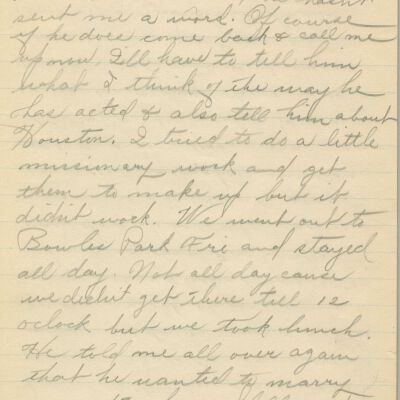 hasn't
sent me a word. Of course
if he does come back & call me
up now I'll have to tell him
what I think of the way he
has acted & also tell him about
Houston. I tried to do a little
missionary work and get
them to make up but it
didn't work. We went out to
Bowles Park Fri and stayed
all day. Not all day cause
we didn't get there till 12
oclock but we took lunch.
He told me all over again
that he wanted to marry